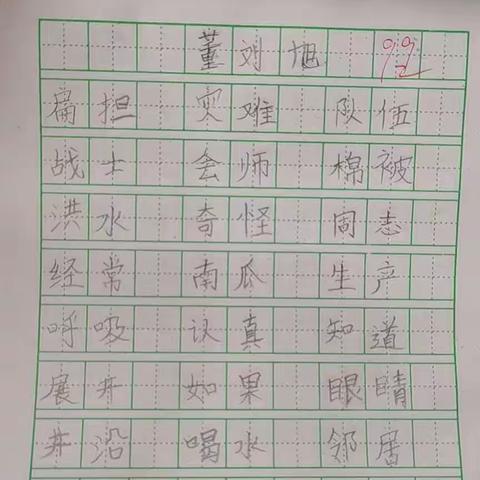 董刘旭 99
扁担 灾难 队伍
战士 会师 棉被
洪水 奇怪 同志
经常 南瓜 生产
呼吸 认真 知道
展开 如果 眼睛
井沿 喝水 邻居